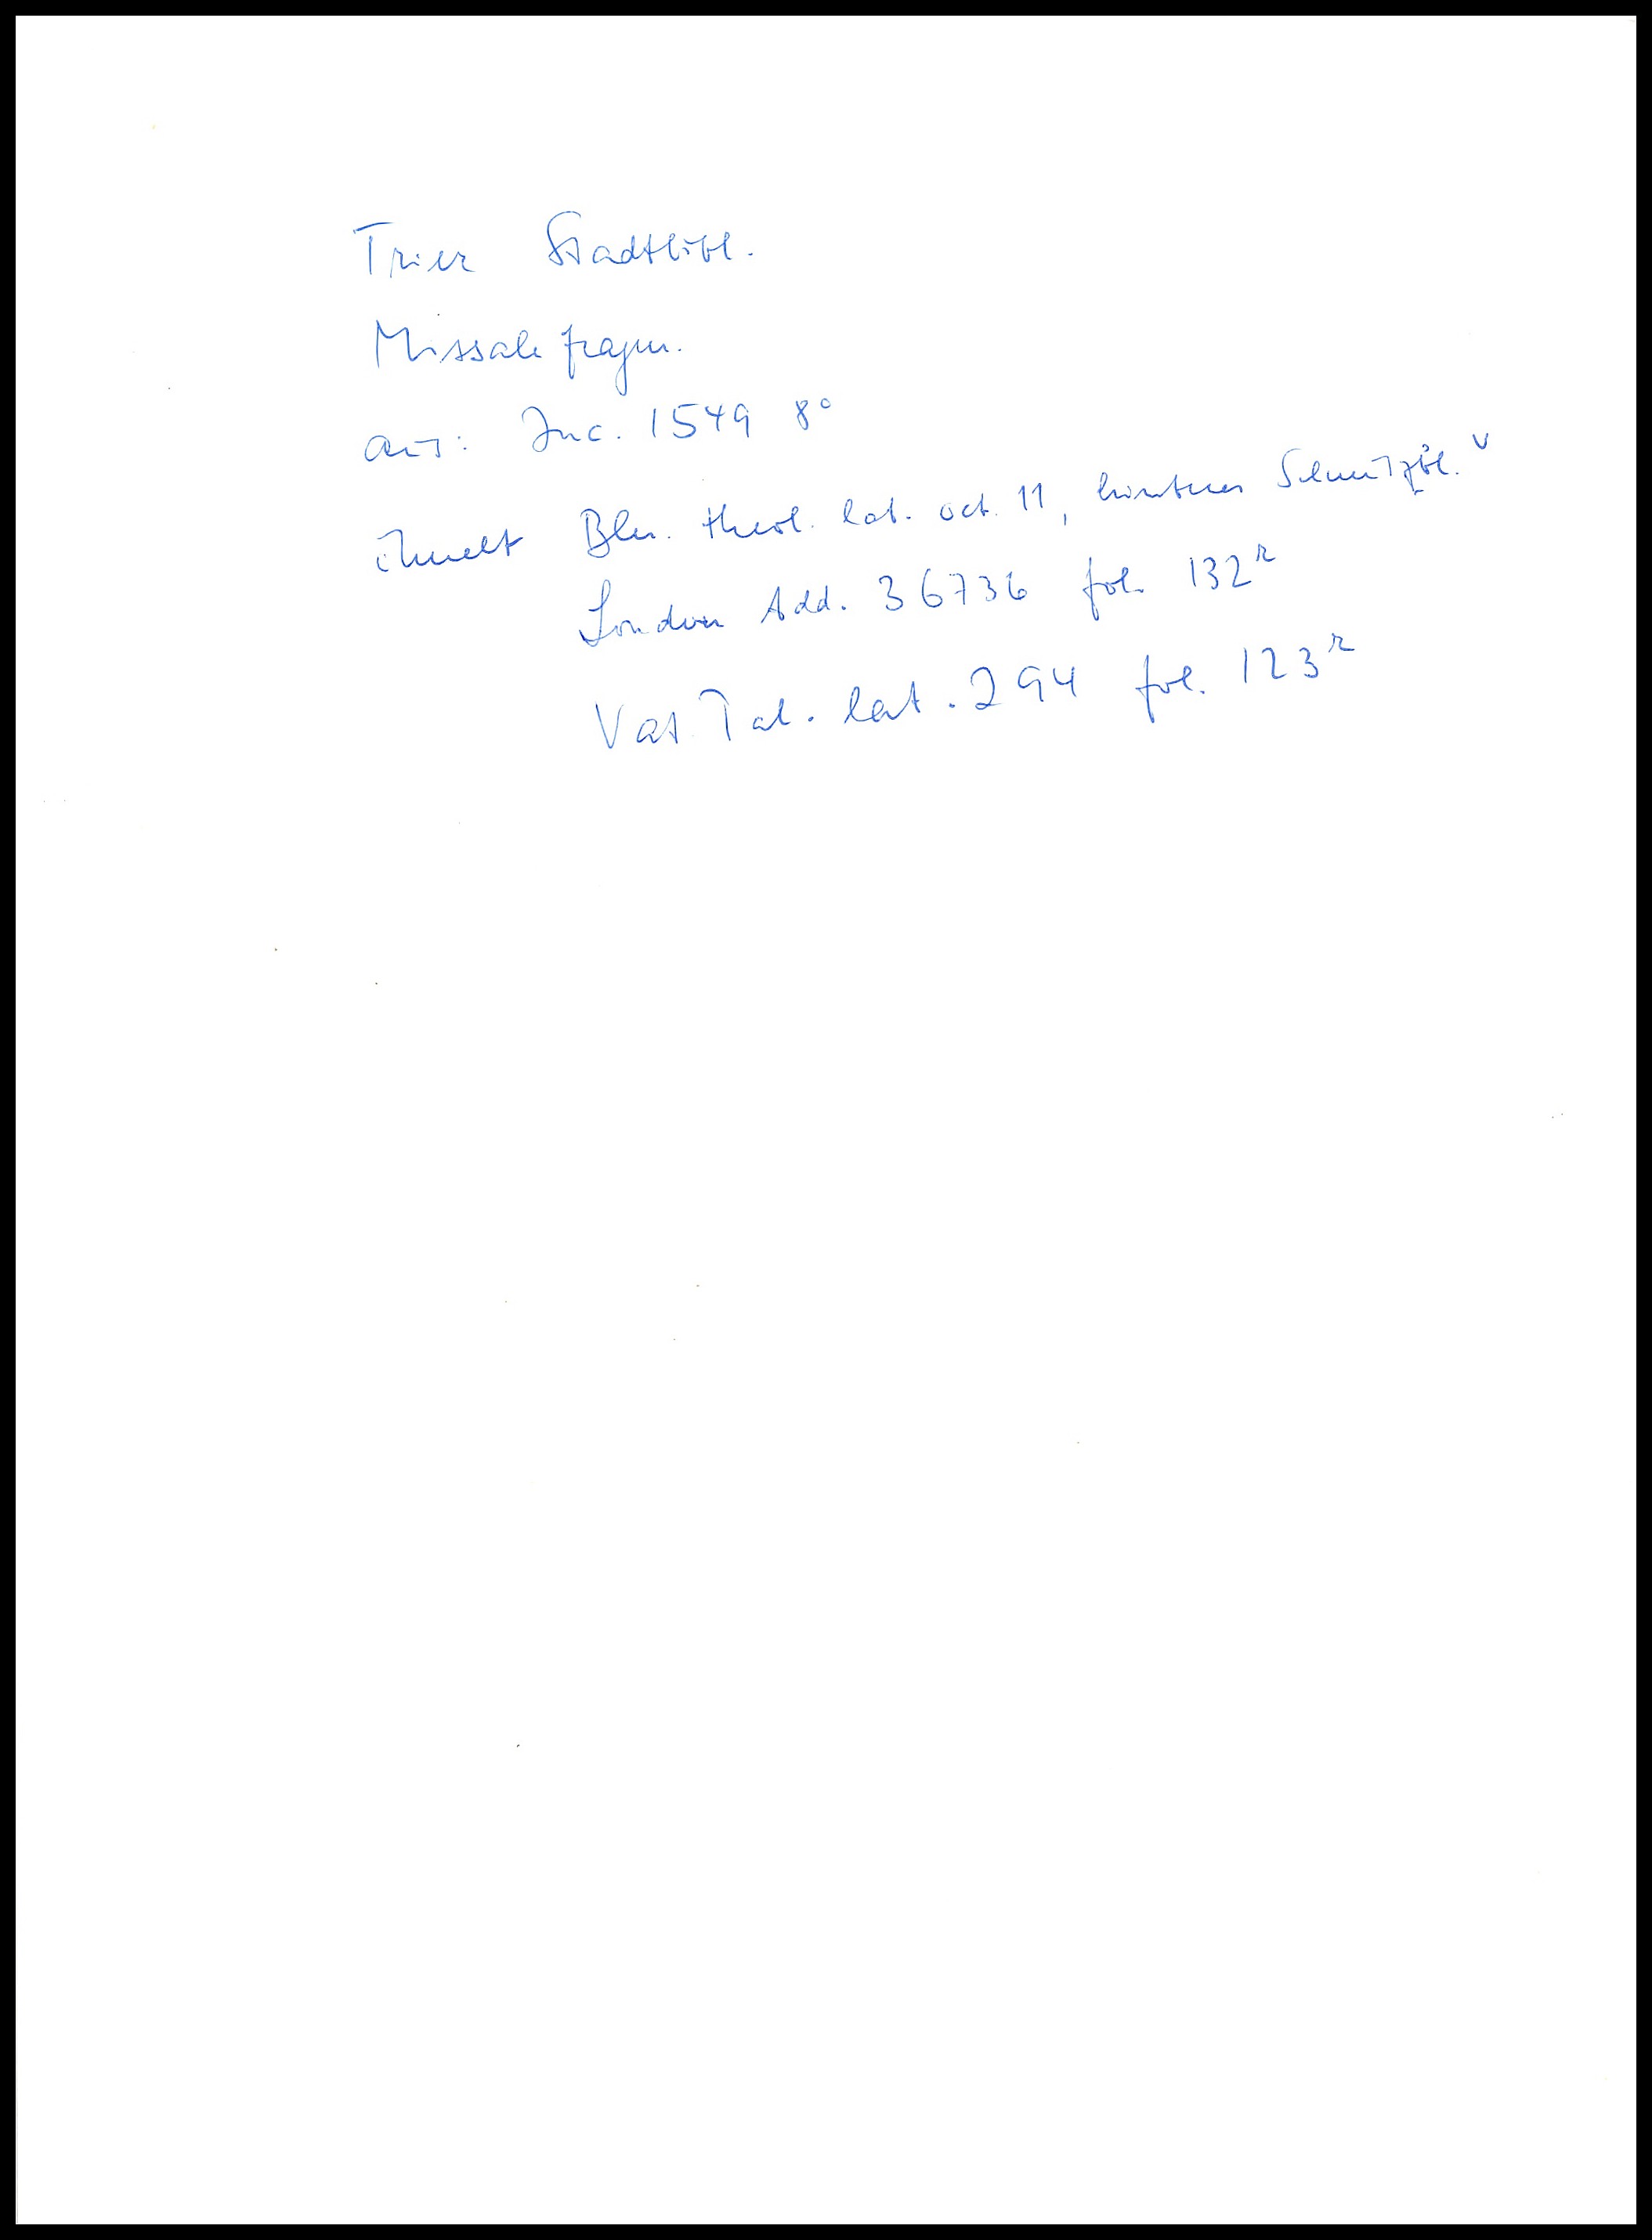 Trier Stadtbibl.
Missale fragm.
aus: Inc. 1549 8°
ähnelt Bln. theol. lat. oct. 11, hinteres Schutzbl. v
London Add. 36736 fol. 132r
Vat. Pal. lat. 294 fol. 123r